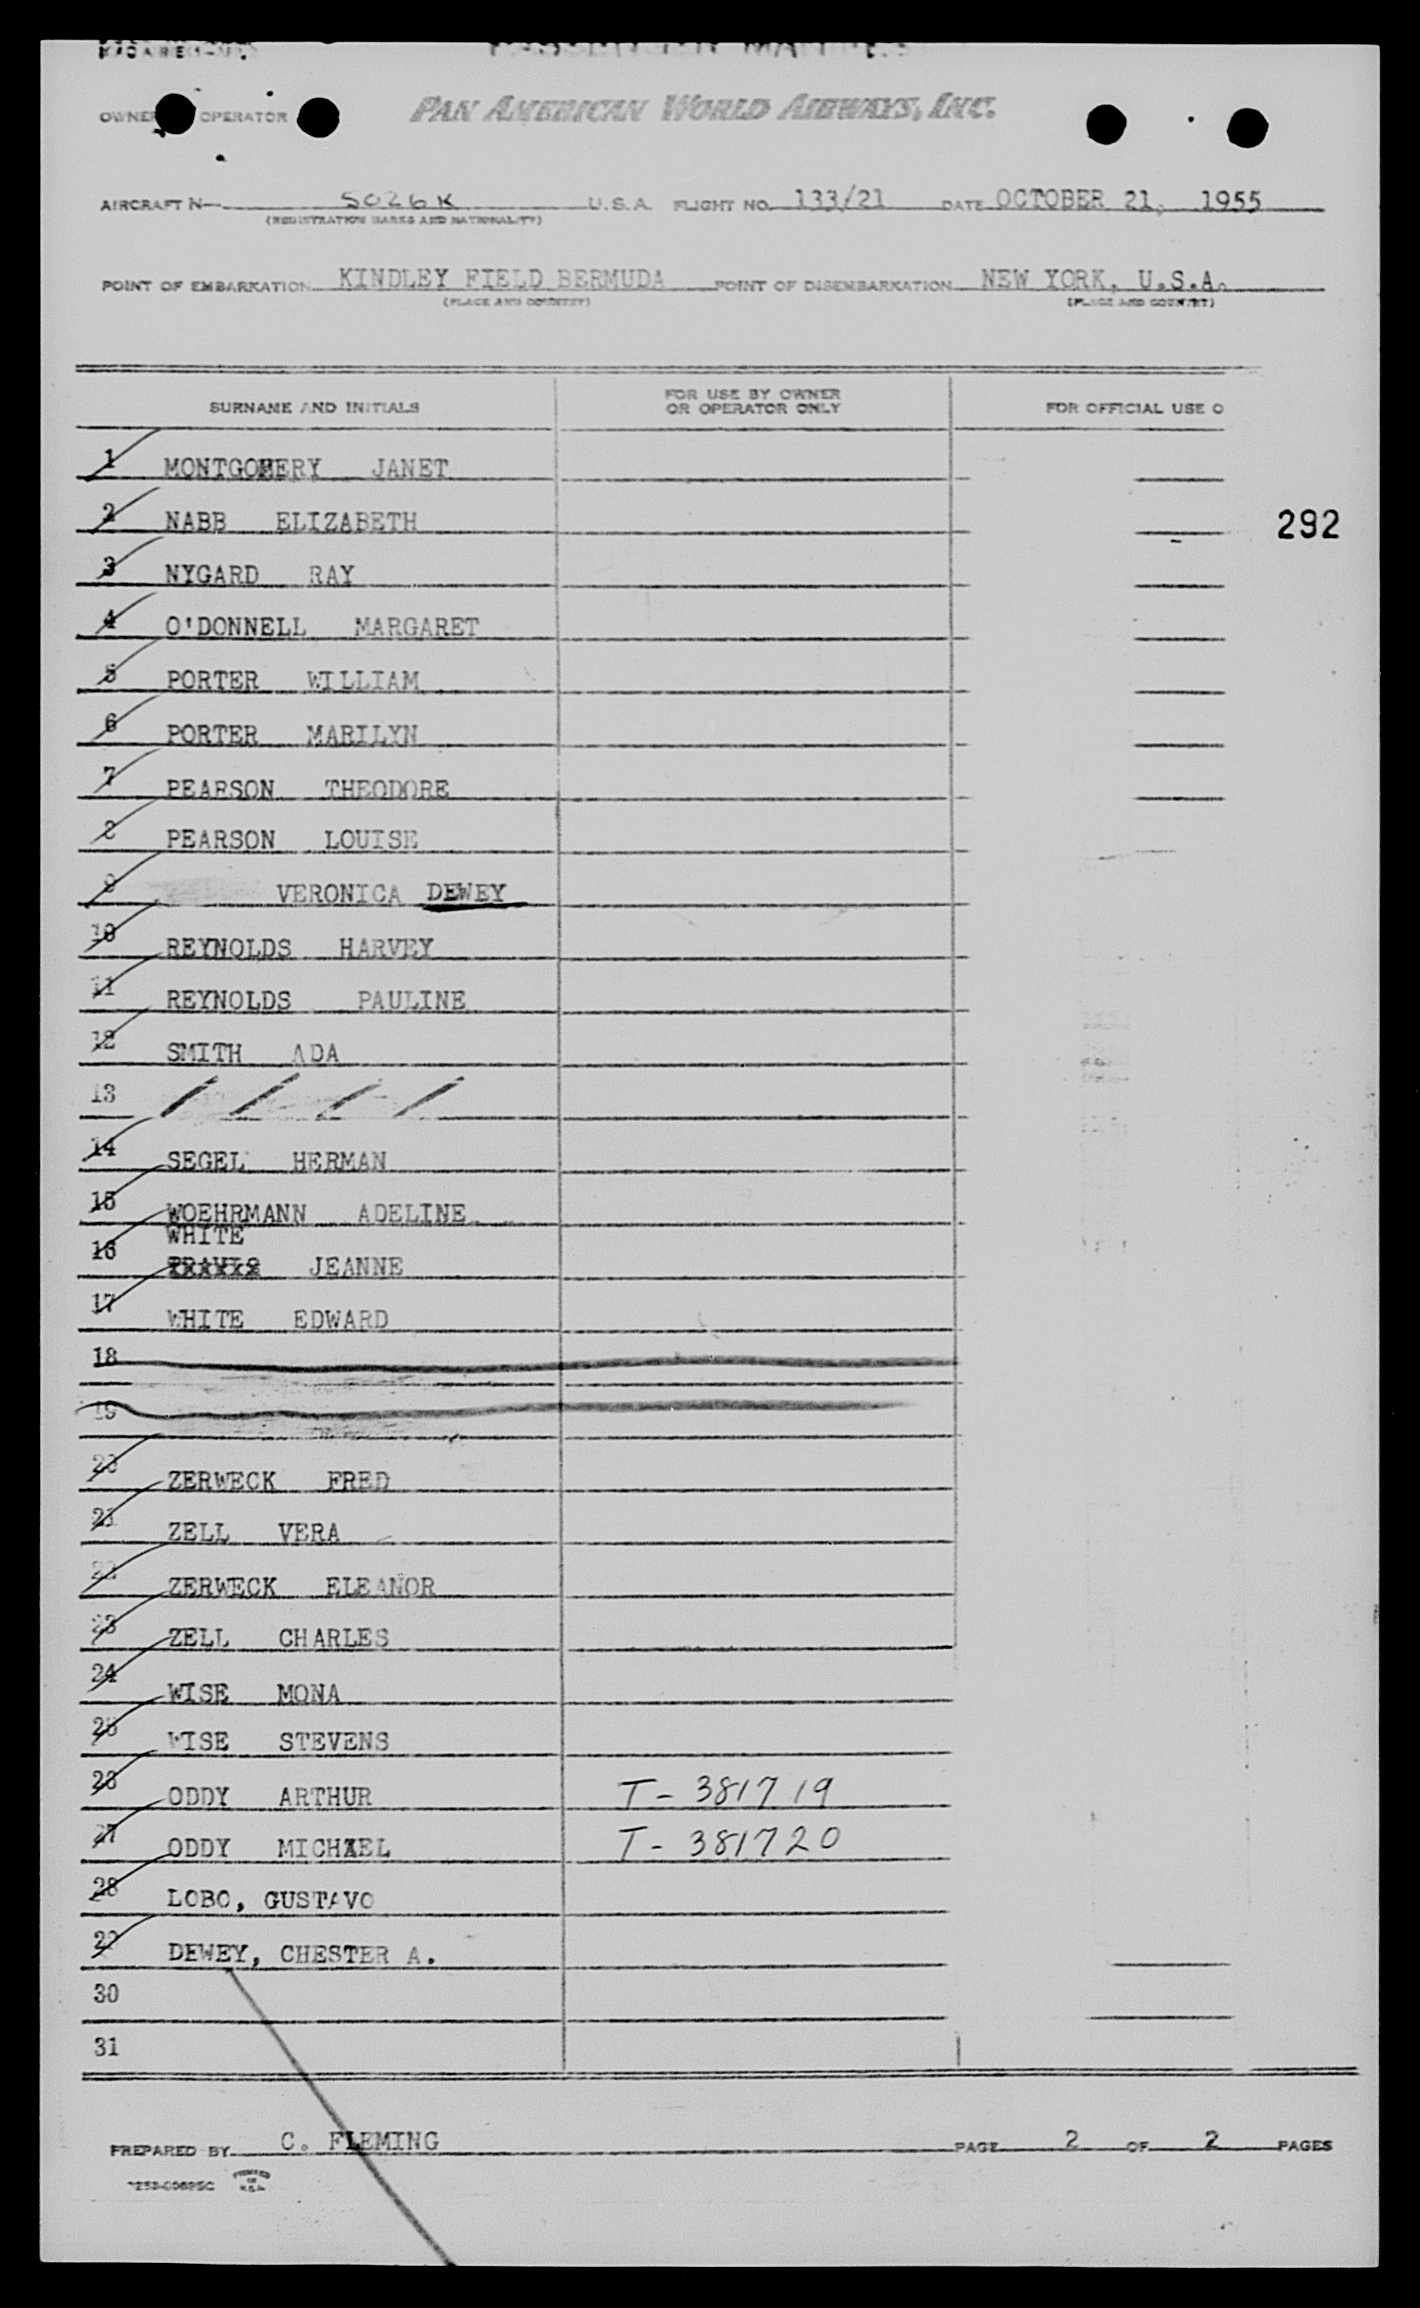 PASSENGER MANIFEST
OWNER OPERATOR PAN AMERICAN WORLD AIRWAYS, INC.
AIRCRAFT N- 5026K U.S.A. FLIGHT NO. 133/21 DATE OCTOBER 21, 1955
(REGISTRATION MARKS AND NATIONALITY)
POINT OF EMBARKATION KINDLEY FIELD BERMUDA POINT OF DISEMBARKATION NEW YORK, U.S.A.
(PLACE AND COUNTRY) (PLACE AND COUNTRY)
SURNAME AND INITIALS FOR USE BY OWNER OR OPERATOR ONLY FOR OFFICIAL USE O
1 MONTGOMERY JANET
2 NABB ELIZABETH
292
3 NYGARD RAY
4 O'DONNELL MARGARET
5 PORTER WILLIAM
6 PORTER MARILYN
7 PEARSON THEODORE
8 PEARSON LOUISE
9 VERONICA DEWEY
10 REYNOLDS HARVEY
11 REYNOLDS PAULINE
12 SMITH ADA
13 / / / /
14 SEGEL HERMAN
15 WOEHRMANN ADELINE
WHITE
16 JEANNE
17 WHITE EDWARD
18
19
20 ZERWECK FRED
21 ZELL VERA
22 ZERWECK ELEANOR
23 ZELL CHARLES
24 WISE MONA
25 WISE STEVENS
26 ODDY ARTHUR T-381719
27 ODDY MICHAEL T-381720
28 LOBO, GUSTAVO
29 DEWEY, CHESTER A.
30
31
PREPARED BY C. FLEMING PAGE 2 OF 2 PAGES
PRINTED IN U.S.A.